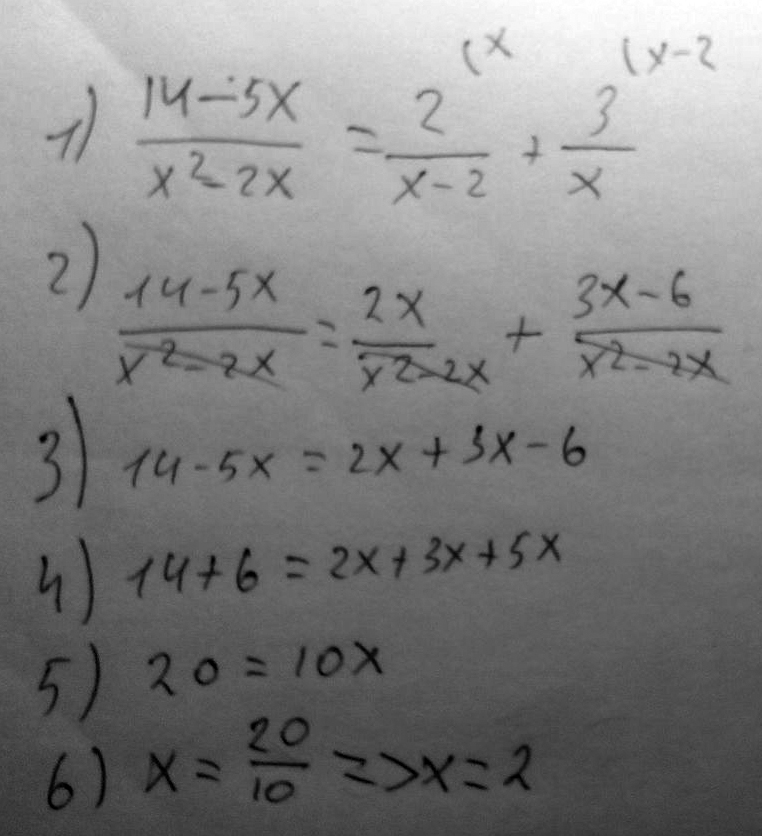 1) (14-5x)/(x²-2x) = 2(x/(x-2) + 3(x-2/x
2) (14-5x)/(x²-2x) = 2x/(x²-2x) + (3x-6)/(x²-2x)
3) 14-5x = 2x+3x-6
4) 14+6 = 2x+3x+5x
5) 20 = 10x
6) x = 20/10 => x = 2